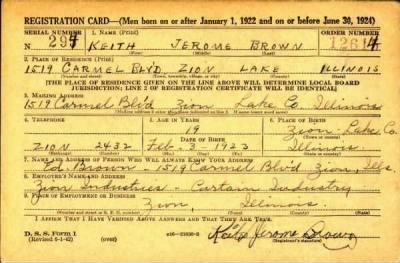 REGISTRATION CARD—(Men born on or after January 1, 1922 and on or before June 30, 1924)
SERIAL NUMBER 1. NAME (Print) ORDER NUMBER
297 KEITH JEROME BROWN 12614
2. PLACE OF RESIDENCE (Print)
1519 CARMEL BLVD ZION LAKE ILLINOIS
(Number and street) (Town, township, village, or city) (County) (State)
[THE PLACE OF RESIDENCE GIVEN ON THE LINE ABOVE WILL DETERMINE LOCAL BOARD
JURISDICTION; LINE 2 OF REGISTRATION CERTIFICATE WILL BE IDENTICAL]
3. MAILING ADDRESS
1519 Carmel Blvd Zion Lake Co. Illinois
4. TELEPHONE 5. AGE IN YEARS 6. PLACE OF BIRTH
19 Zion - Lake Co.
DATE OF BIRTH
ZION 2432 Feb. 3 1923 Illinois.
7. NAME AND ADDRESS OF PERSON WHO WILL ALWAYS KNOW YOUR ADDRESS
Ed. Brown - 1519 Carmel Blv'd Zion, Ills.
8. EMPLOYER'S NAME AND ADDRESS
Zion Industries - Curtain Industry
9. PLACE OF EMPLOYMENT OR BUSINESS
Zion, Illinois.
(Number and street or R. F. D. number) (Town) (County) (State)
I AFFIRM THAT I HAVE VERIFIED ABOVE ANSWERS AND THAT THEY ARE TRUE.
D. S. S. Form 1
(Revised 6-1-42) (over) Keith Jerome Brown
(Registrant's signature)